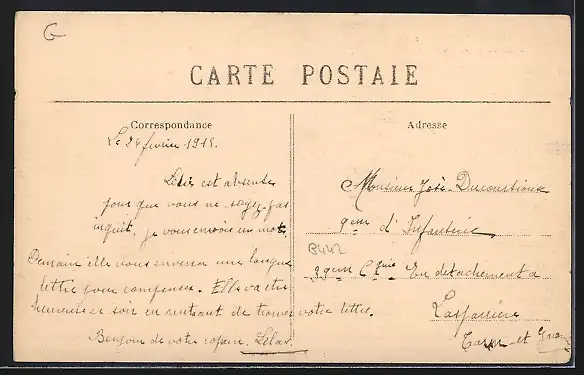 G
CARTE POSTALE
Correspondance
Le 24 février 1918.
est absente
pour que vous ne soyez pas
inquiet, je vous envois un mot.
Demain elle vous enverra une longue
lettre pour compenser. Elle va être
heureuse ce soir en rentrant de trouver votre lettre.
Bonjour de votre copain,
Adresse
Monsieur José
9eme d'Infanterie
33eme Cgnie En détachement a
Tarn et Garon